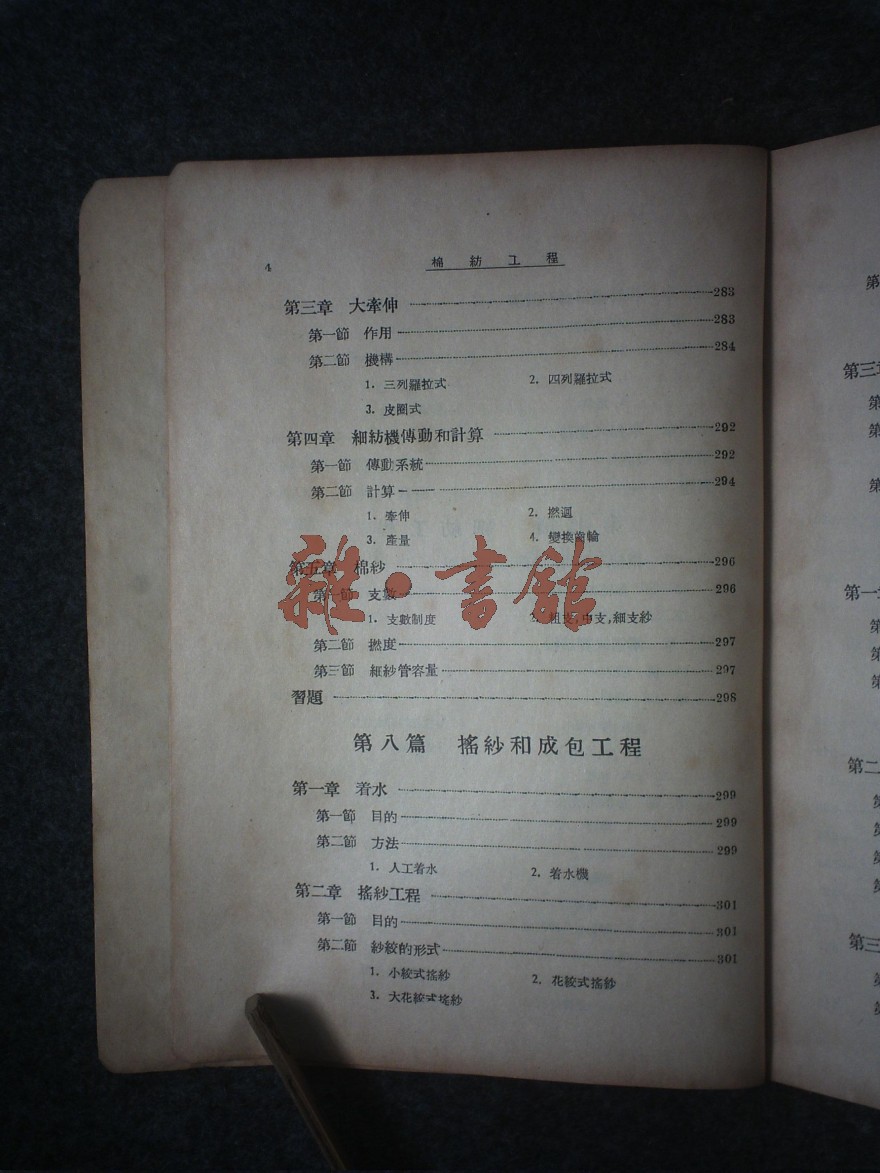 4 棉紡工程
第三章 大牽伸 283
第一節 作用 283
第二節 機構 284
1. 三列羅拉式 2. 四列羅拉式
3. 皮圈式
第四章 細紡機傳動和計算 292
第一節 傳動系統 292
第二節 計算 294
1. 牽伸 2. 撚迴
3. 產量 4. 變換齒輪
第五章 棉紗 296
第一節 支數 296
1. 支數制度 2. 粗支,中支,細支紗
第二節 撚度 297
第三節 細紗管容量 297
習題 298
雜·書館
第八篇 搖紗和成包工程
第一章 着水 299
第一節 目的 299
第二節 方法 299
1. 人工着水 2. 着水機
第二章 搖紗工程 301
第一節 目的 301
第二節 紗絞的形式 301
1. 小絞式搖紗 2. 花絞式搖紗
3. 大花絞式搖紗
第
第三
第
第
第
第一
第
第
第
第二
第
第
第
第
第三